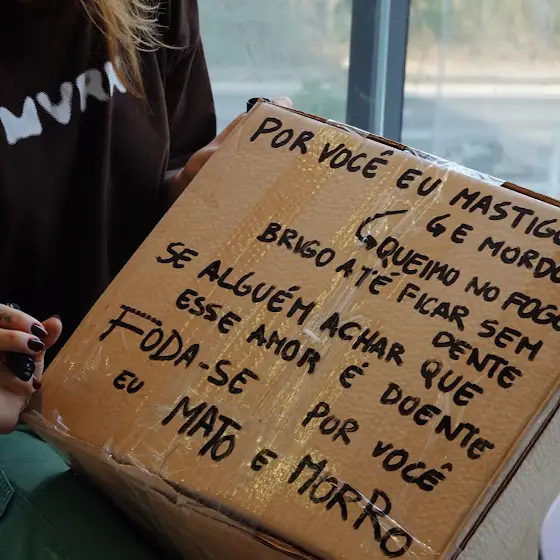 POR VOCÊ EU MASTIGO
E MORDO
QUEIMO NO FOGO
BRIGO ATÉ FICAR SEM
DENTE
SE ALGUÉM ACHAR QUE
ESSE AMOR É DOENTE
FODA-SE
POR VOCÊ
EU MATO E MORRO